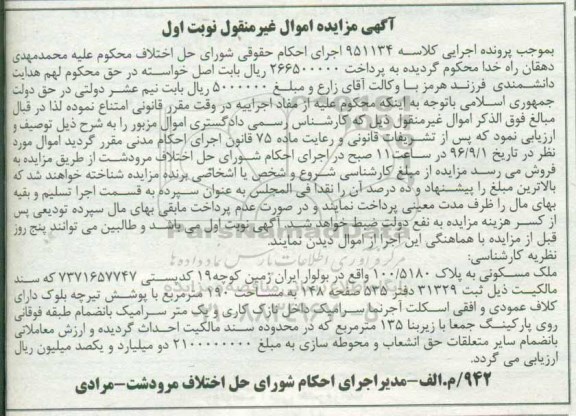 آگهی مزایده اموال غیرمنقول نوبت اول
بموجب پرونده اجرایی کلاسه ۹۵۱۱۳۴ اجرای احکام حقوقی شورای حل اختلاف محکوم علیه محمدمهدی
دهقان راه خدا محکوم گردیده به پرداخت ۲۶۶۵۰۰۰۰۰ ریال بابت اصل خواسته در حق محکوم لهم هدایت
دانشمندی فرزند هرمز با وکالت آقای زارع و مبلغ ۵۰۰۰۰۰۰ ریال بابت نیم عشر دولتی در حق دولت
جمهوری اسلامی باتوجه به اینکه محکوم علیه از مفاد اجراییه در وقت مقرر قانونی امتناع نموده لذا در قبال
مبالغ فوق الذکر اموال غیرمنقول ذیل که کارشناس رسمی دادگستری اموال مزبور را به شرح ذیل توصیف و
ارزیابی نمود که پس از تشریفات قانونی و رعایت ماده ۷۵ قانون اجرای احکام مدنی مقرر گردید اموال مورد
نظر در تاریخ ۹۶/۹/۱ در ساعت۱۱ صبح در اجرای احکام شورای حل اختلاف مرودشت از طریق مزایده به
فروش می رسد مزایده از مبلغ کارشناسی شروع و شخص یا اشخاصی برنده مزایده شناخته خواهند شد که
بالاترین مبلغ را پیشنهاد و ده درصد آن را نقدا فی المجلس به عنوان سپرده به قسمت اجرا تسلیم و بقیه
بهای مال را ظرف مدت معینی پرداخت نمایند و در صورت عدم پرداخت مابقی بهای مال سپرده تودیعی پس
از کسر هزینه مزایده به نفع دولت ضبط خواهد شد. آگهی نوبت اول می باشد و طالبین می توانند پنج روز
قبل از مزایده با هماهنگی این اجرا از اموال دیدن نمایند.
نظریه کارشناسی:
ملک مسکونی به پلاک ۱۰۰/۵۱۸۰ واقع در بولوار ایران زمین کوچه۱۹ کدپستی ۷۳۷۱۶۵۷۷۴۷ که سند
مالکیت ذیل ثبت ۳۱۳۲۹ دفتر ۵۳۵ صفحه ۱۴۸ به مساحت ۱۹۰ مترمربع با پوشش تیرچه بلوک دارای
کلاف عمودی و افقی اسکلت آجرنما سرامیک داخل نازک کاری و یک متر سرامیک بانضمام طبقه فوقانی
روی پارکینگ جمعا با زیربنا ۱۳۵ مترمربع که در محدوده سند مالکیت احداث گردیده و ارزش معاملاتی
بانضمام سایر متعلقات حق انشعاب و محوطه سازی به مبلغ ۲۱۰۰۰۰۰۰۰۰ دو میلیارد و یکصد میلیون ریال
ارزیابی می گردد.
۹۴۲/م.الف-مدیراجرای احکام شورای حل اختلاف مرودشت-مرادی